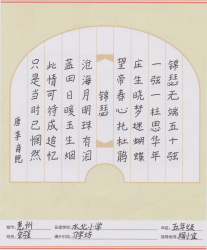 锦瑟无端五十弦
一弦一柱思华年
庄生晓梦迷蝴蝶
望帝春心托杜鹃
锦瑟
沧海月明珠有泪
蓝田日暖玉生烟
此情可待成追忆
只是当时已惘然
唐 李商隐
惠州
水北小学
五年级